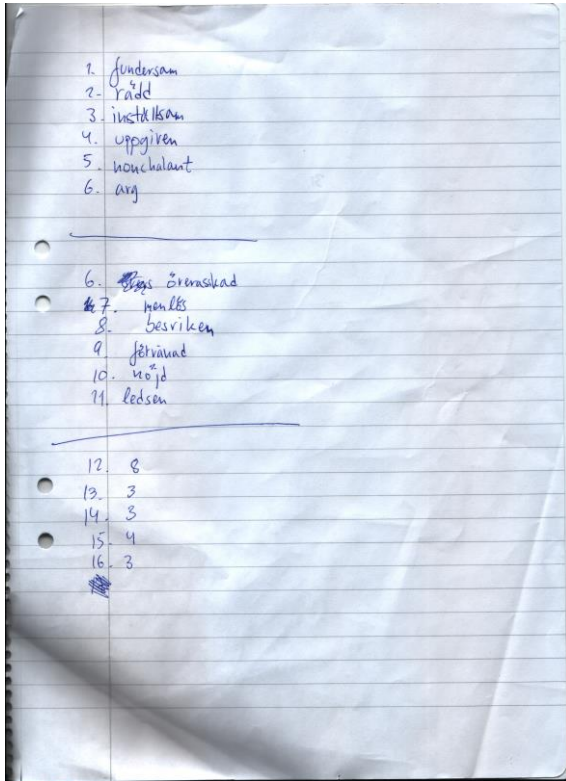 1. fundersam
2. rädd
3. inställsam
4. uppgiven
5. nonchalant
6. arg
6. överraskad
7. menlös
8. besviken
9 förvånad
10. nöjd
11. ledsen
12. 8
13. 3
14. 3
15. 4
16. 3